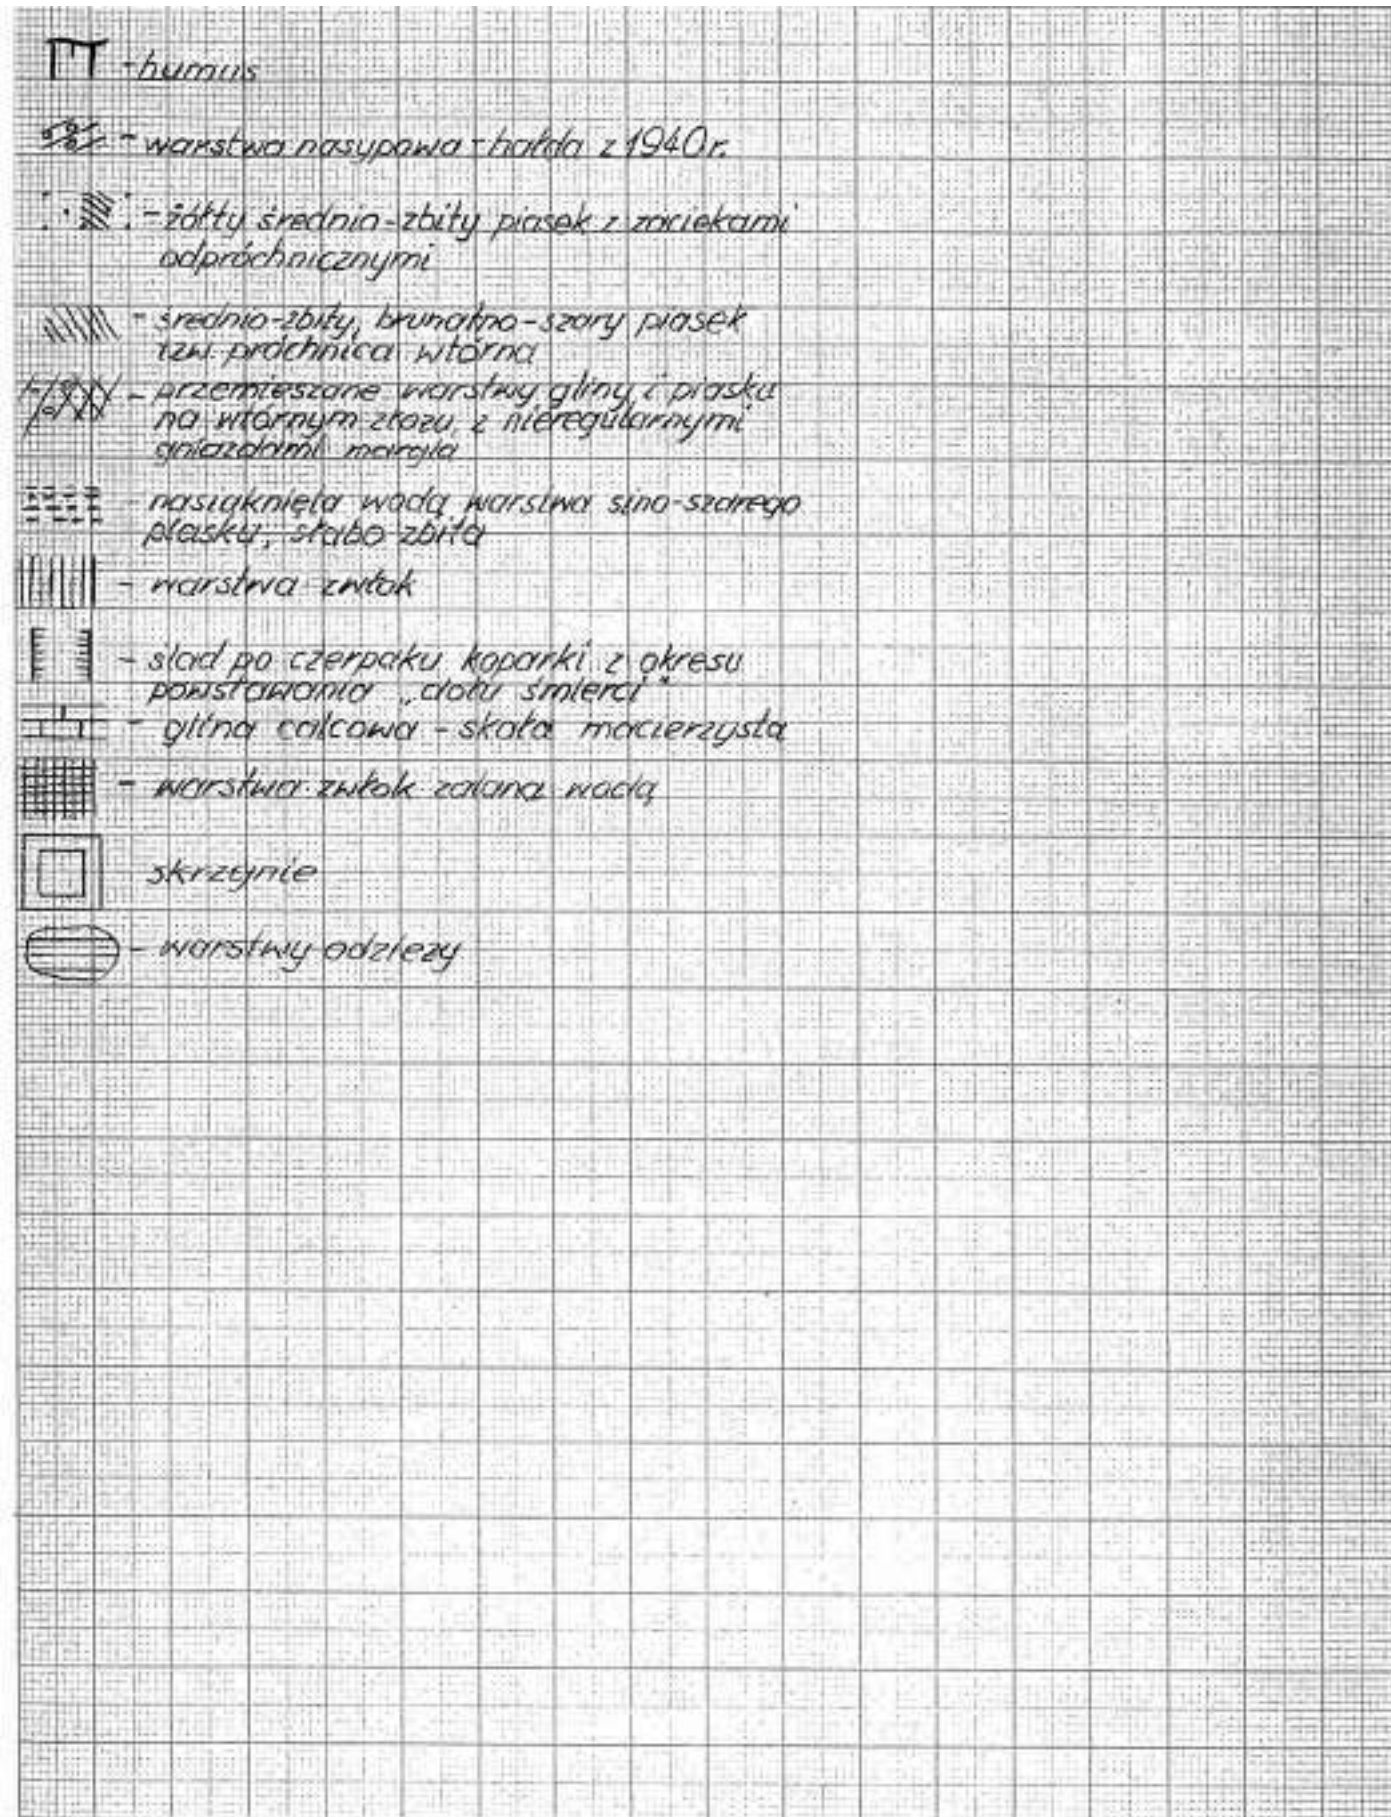 - humus
- warstwa nasypowa - hałda z 1940 r.
- żółty średnio-zbity piasek z zaciekami
odpróchnicznymi
- średnio-zbity, brunatno-szary piasek
tzw. próchnica wtórna
- przemieszane warstwy gliny i piasku
na wtórnym złożu z nieregularnymi
gniazdami margla
- nasiąknięta wodą warstwa sino-szarego
piasku, słabo zbita
- warstwa zwłok
- ślad po czerpaku koparki z okresu
powstawania „dołu śmierci"
- glina calcowa - skała macierzysta
- warstwa zwłok zalana wodą
skrzynie
- warstwy odzieży